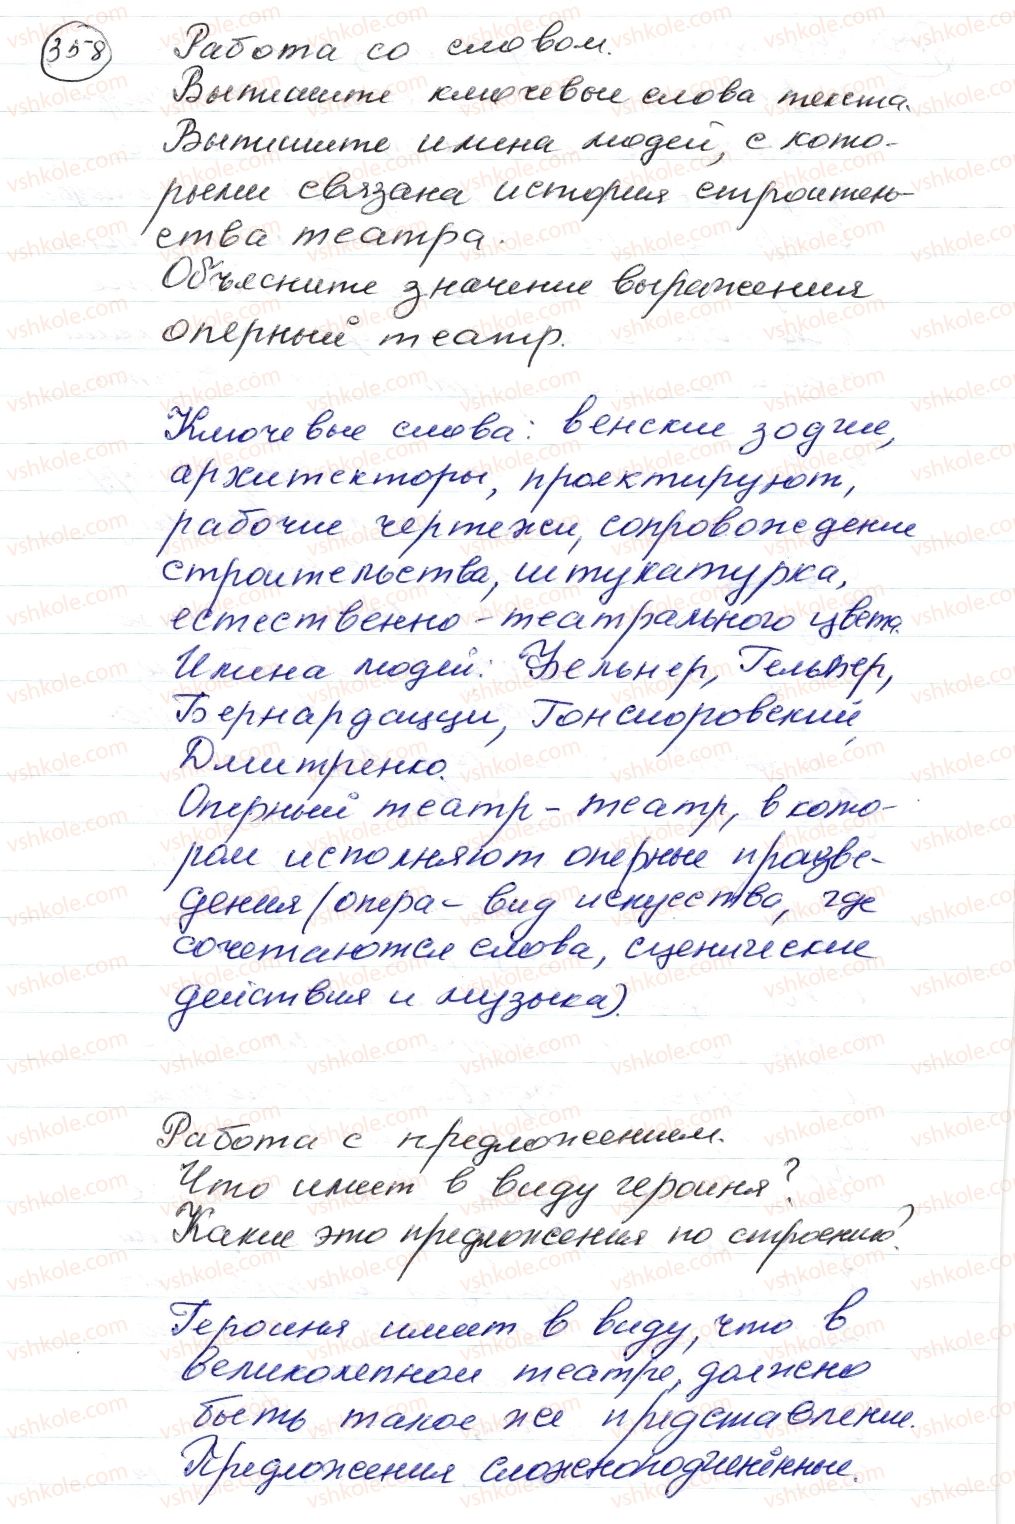 358 Работа со словом.
Выпишите ключевые слова текста.
Выпишите имена людей, с кото-
рыми связана история строитель-
ства театра.
Объясните значение выражения
оперный театр.
Ключевые слова: венские зодчие,
архитекторы, проектируют,
рабочие чертежи, сопровождение
строительства, штукатурка,
естественно-театрального цвета.
Имена людей: Фельнер, Гельмер,
Бернардацци, Гонсиоровский,
Дмитренко.
Оперный театр - театр, в кото-
ром исполняют оперные произве-
дения (опера - вид искусства, где
сочетаются слова, сценические
действия и музыка).
Работа с предложением.
Что имеет в виду героиня?
Какие это предложения по строению?
Героиня имеет в виду, что в
великолепном театре, должно
быть такое же представление.
Предложения сложноподчинённые.
vshkole.com